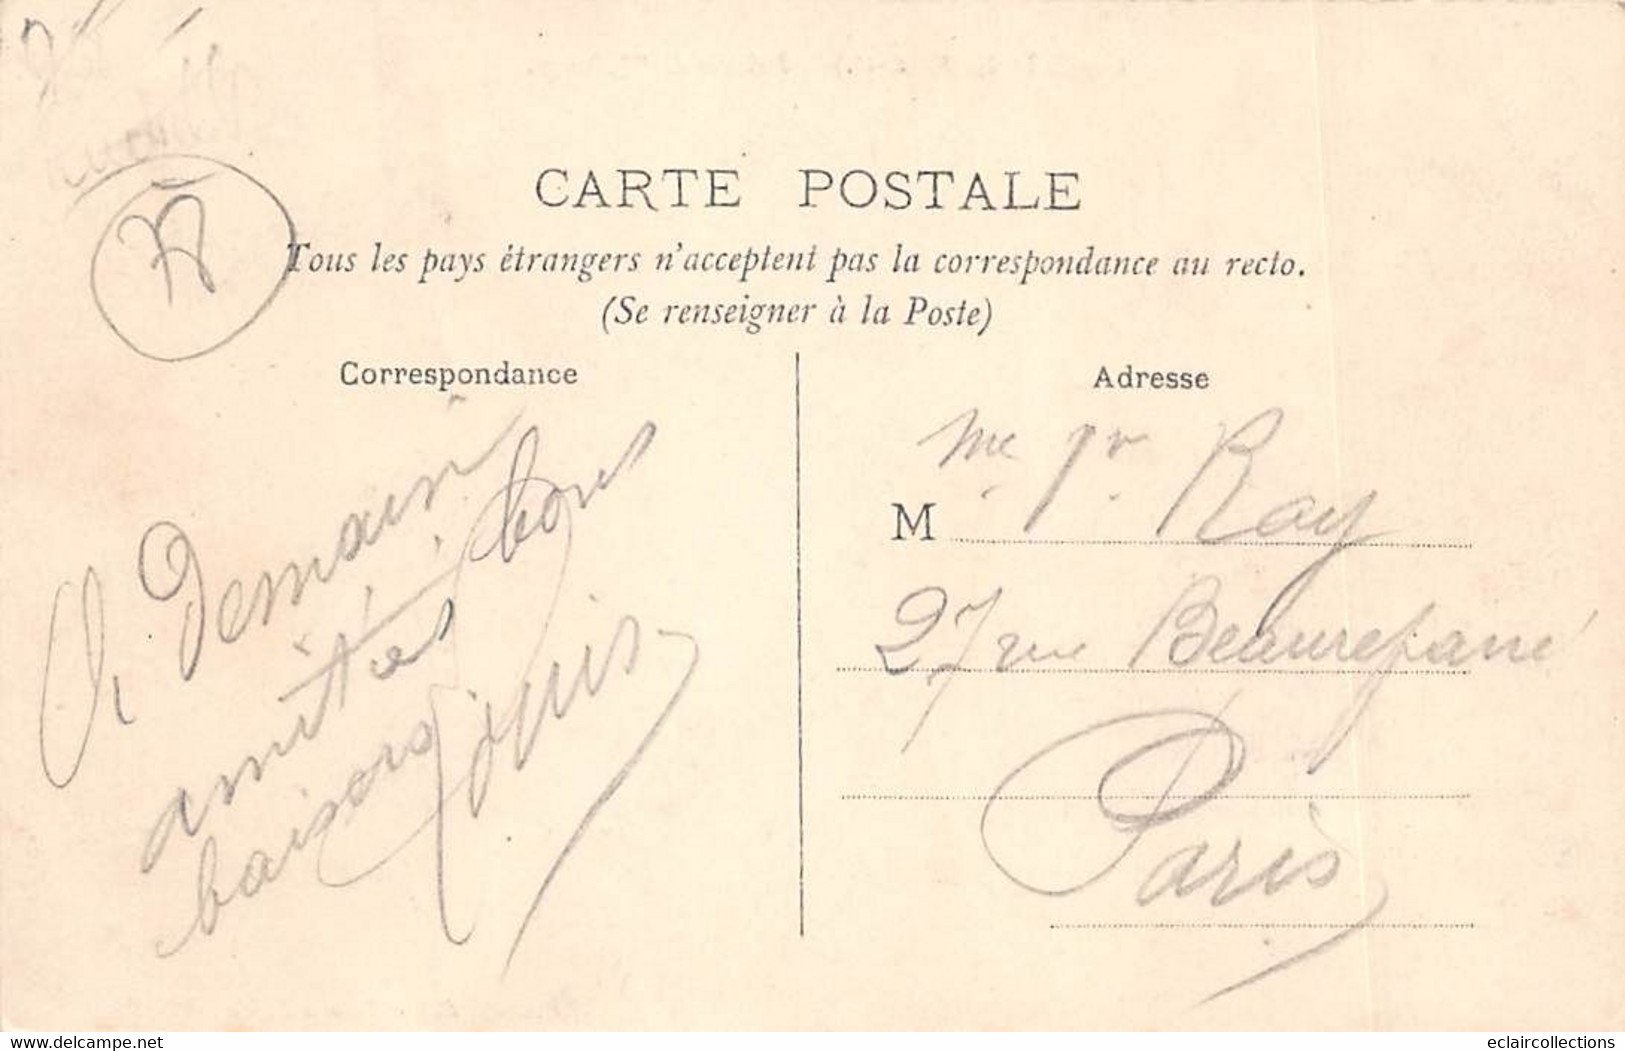 CARTE POSTALE
Tous les pays étrangers n'acceptent pas la correspondance au recto.
(Se renseigner à la Poste)
Correspondance
A Demain
amitiés bons
baisers
Adresse
Me Vr Ray
M
27 rue Beaurepaire
Paris
www.delcampe.net
eclaircollections